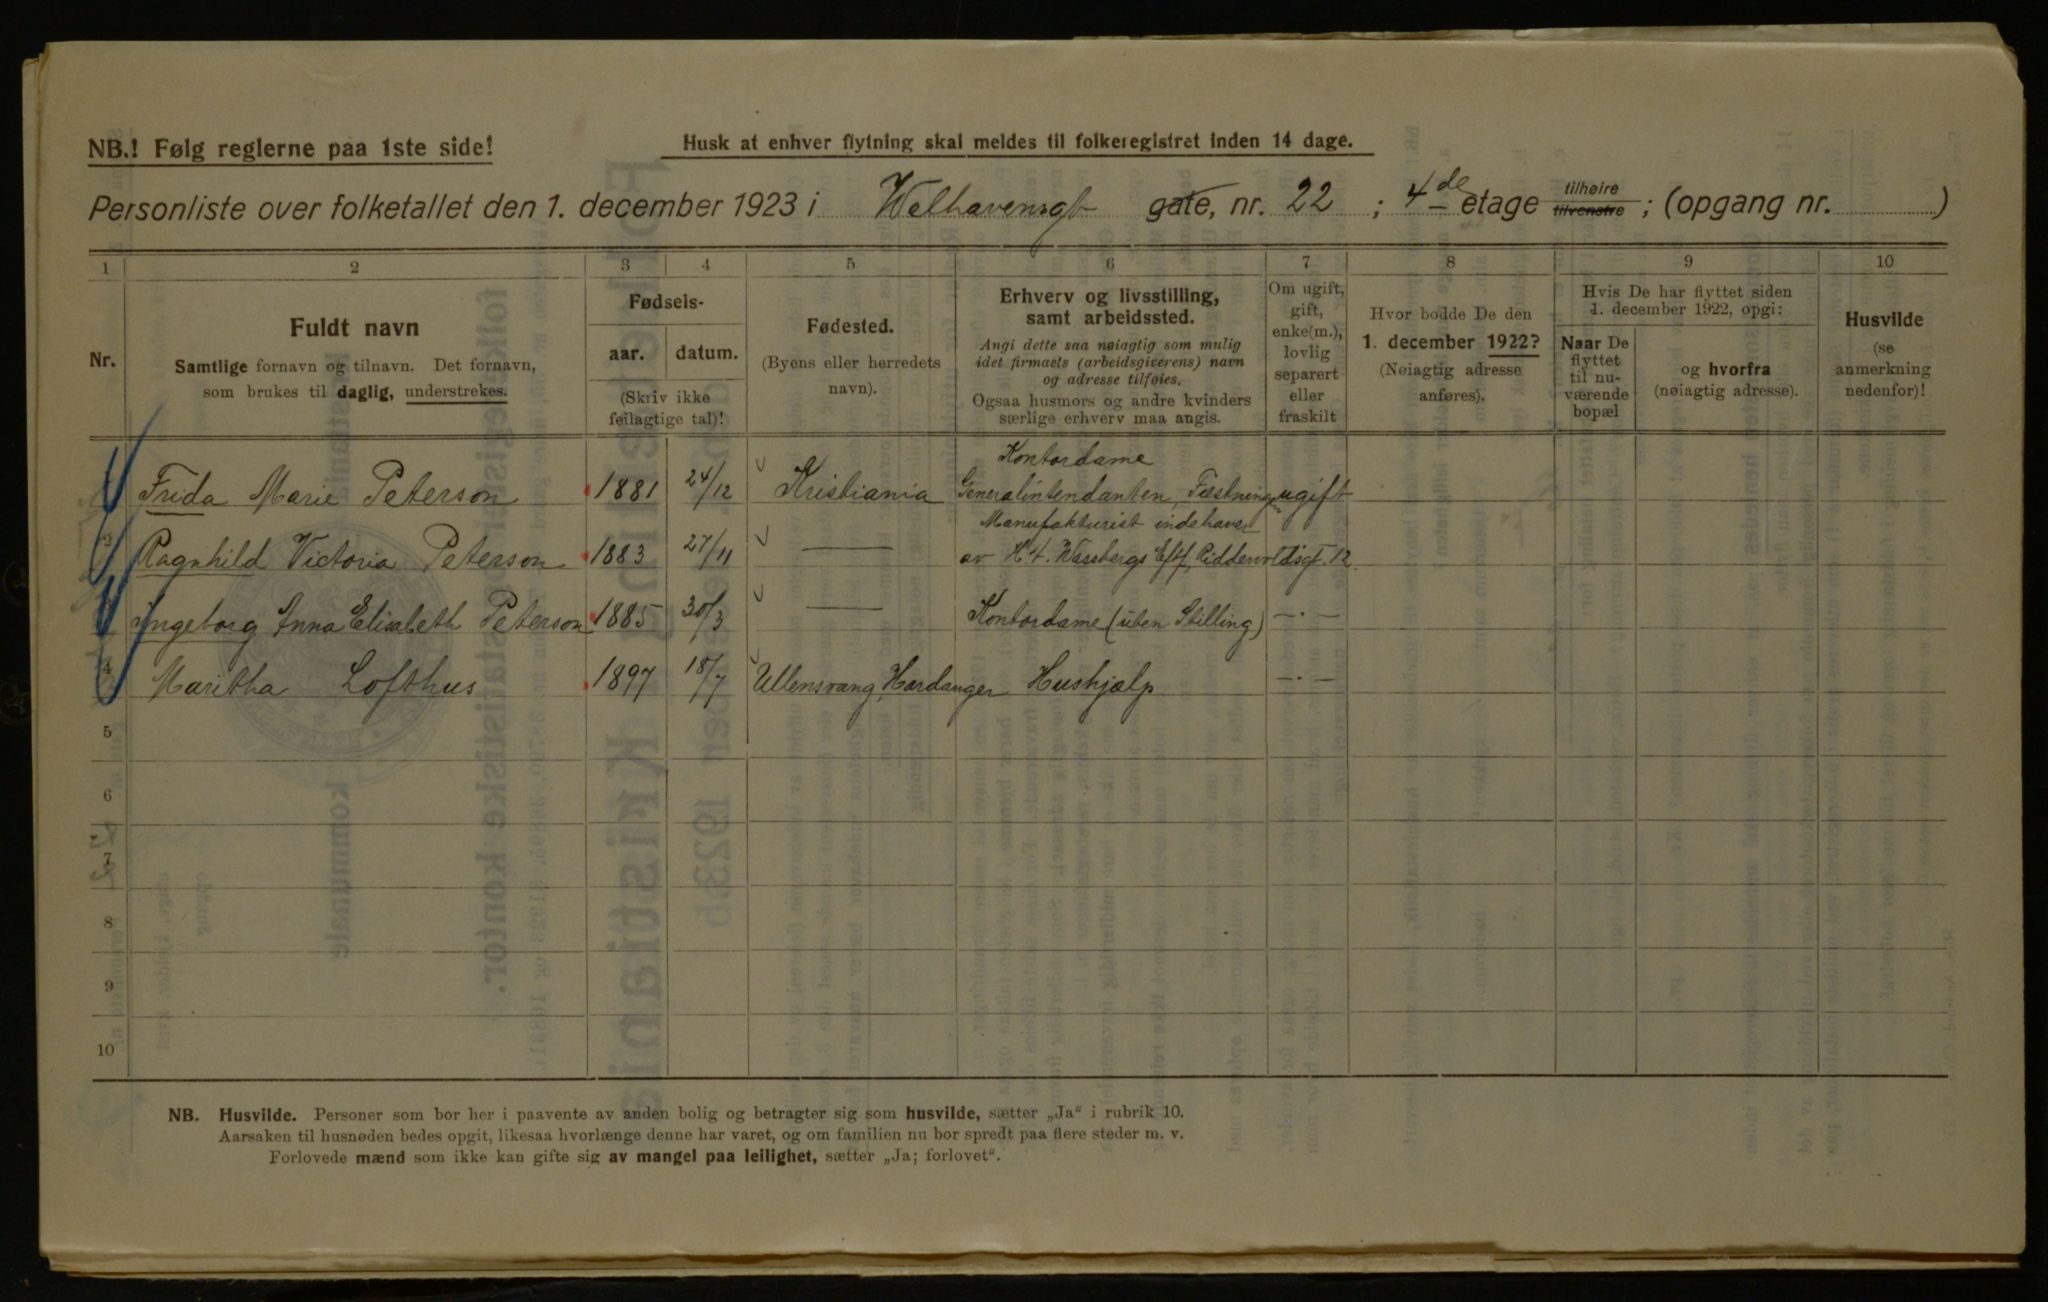 NB.! Følg reglerne paa 1ste side!
Husk at enhver flytning skal meldes til folkeregistret inden 14 dage.
Personliste over folketallet den 1. december 1923 i Welhavensgt gate, nr. 22 ; 4de etage tilhøire tilvenstre ; (opgang nr. )
1 2 3 4 5 6 7 8 9 10
Nr.
Fuldt navn
Samtlige fornavn og tilnavn. Det fornavn,
som brukes til daglig, understrekes.
Fødsels-
aar. datum.
(Skriv ikke
feilagtige tal)!
Fødested.
(Byens eller herredets
navn).
Erhverv og livsstilling,
samt arbeidssted.
Angi dette saa nøiagtig som mulig
idet firmaets (arbeidsgiverens) navn
og adresse tilføies.
Ogsaa husmors og andre kvinders
særlige erhverv maa angis.
Om ugift,
gift,
enke(m.),
lovlig
separert
eller
fraskilt
Hvor bodde De den
1. december 1922?
(Nøiagtig adresse
anføres).
Hvis De har flyttet siden
1. december 1922, opgi:
Naar De
flyttet
til nu-
værende
bopæl
og hvorfra
(nøiagtig adresse).
Husvilde
(se
anmerkning
nedenfor)!
Kontordame
Frida Marie Peterson 1881 24/12 Kristiania Generalintendanten, Fæstningen ugift
Manufakturist indehaver
2 Ragnhild Victoria Peterson 1883 27/11 — av H. 4. Wassbergs Eftf, Riddervoldsgt. 12.
Ingeborg Anna Elisabeth Peterson 1885 30/3 — Kontordame (uten Stilling) —·—
4 Maritha Lofthus 1897 18/7 Ullensvang, Hardanger Hushjælp —·—
5
6
7
8
9
10
NB. Husvilde. Personer som bor her i paavente av anden bolig og betragter sig som husvilde, sætter „Ja“ i rubrik 10.
Aarsaken til husnøden bedes opgit, likesaa hvorlænge denne har varet, og om familien nu bor spredt paa flere steder m. v.
Forlovede mænd som ikke kan gifte sig av mangel paa leilighet, sætter „Ja; forlovet“.